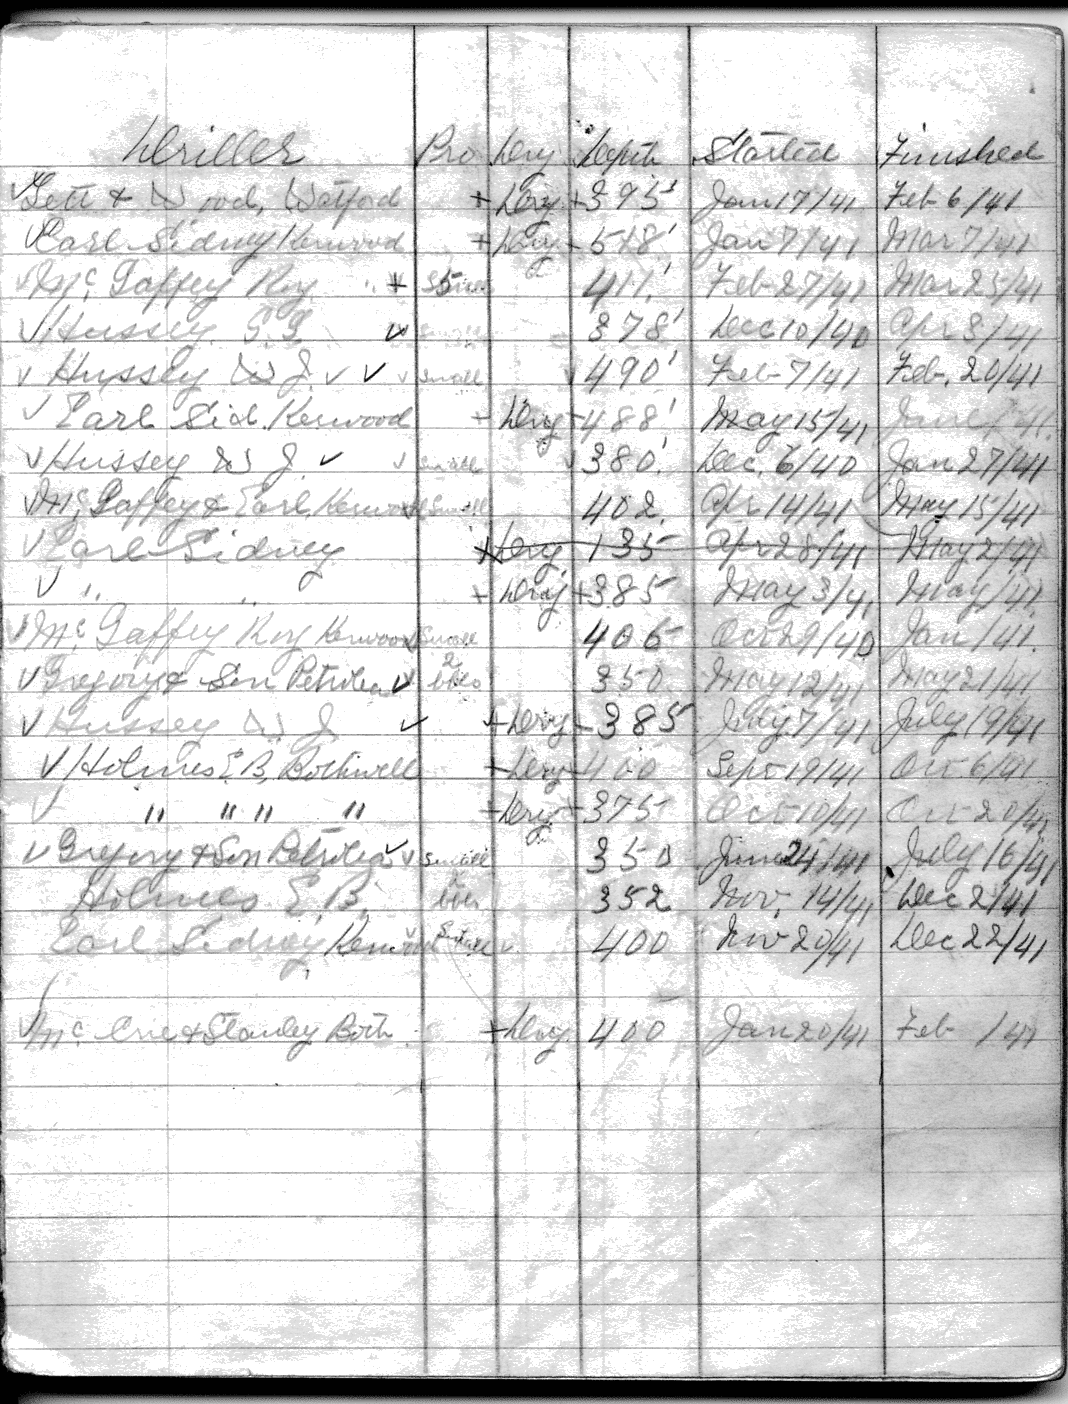 Driller Pro Dry Depth Started Finished
✓ Gett & Wood, Watford + Dry + 395' Jan 17/41 Feb 6/41
✓ Earl Sidney Kenwood + Dry - 518' Jan 7/41 Mar 7/41
✓ Mc Gaffey Roy " + 411' Feb 27/41 Mar 25/41
✓ Hussey ✓ Small 378' Dec 10/40 Apr 8/41
✓ Hussey W J. ✓ ✓ ✓ Small ✓ 490' Feb 7/41 Feb. 20/41
✓ Earl Sid. Kenwood - Dry - 488' May 15/41 June /41.
✓ Hussey W J. ✓ ✓ Small ✓ 380'. Dec. 6/40 Jan 27/41
✓ Mc Gaffey & Earl, Kenwood Small 402. Apr 14/41 May 15/41
✓ Earl Sidney Dry 135 Apr 28/41 May 2/41
✓ " " + Dry + 385 May 3/41 May /41.
✓ Mc Gaffey Roy Kenwood Small 406 Oct 29/40 Jan /41.
✓ Gregory & Son Petrolea ✓ 2 bbls 350 May 12/41 May 21/41
✓ Hussey W J. ✓ + Dry - 385 July 7/41 July 19/41
✓ Holmes E B, Bothwell - Dry - 400 Sept 19/41 Oct 6/41.
✓ " " " " - Dry + 375 Oct 10/41 Oct 20/41
✓ Gregory & Son Petrolea ✓ ✓ Small 350 June 24/41 July 16/41
Holmes E, B, bbls 352 Nov, 14/41 Dec 2/41
Earl Sidney Kenwood Small ✓ 400 Nov 20/41 Dec 22/41
✓ Mc Crie & Stanley Both. + Dry. 400 Jan 20/41 Feb /41